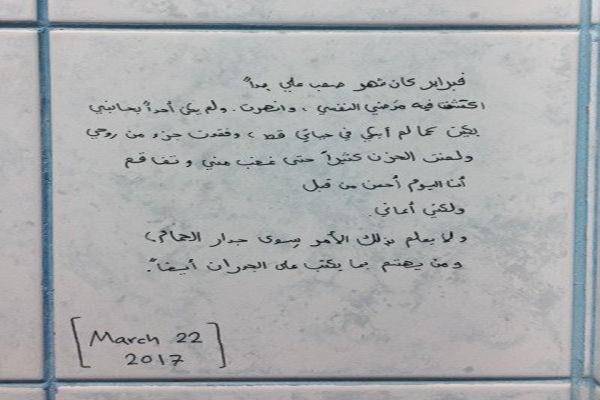 فبراير كان شهر صعب علي جداً
اكتشفت فيه مرضي النفسي، وانهرت. ولم يكن أحداً بجانبي
بكيت كما لم أبكي في حياتي قط، وفقدت جزء من روحي
ولعنت الحزن كثيراً حتى غضب مني وتفاقم
أنا اليوم أحسن من قبل
ولكني أعاني.
ولا يعلم بذلك الأمر سوى جدار الحمام،
ومن يهتم بما يكتب على الجدران أيضاً.
[March 22
2017]